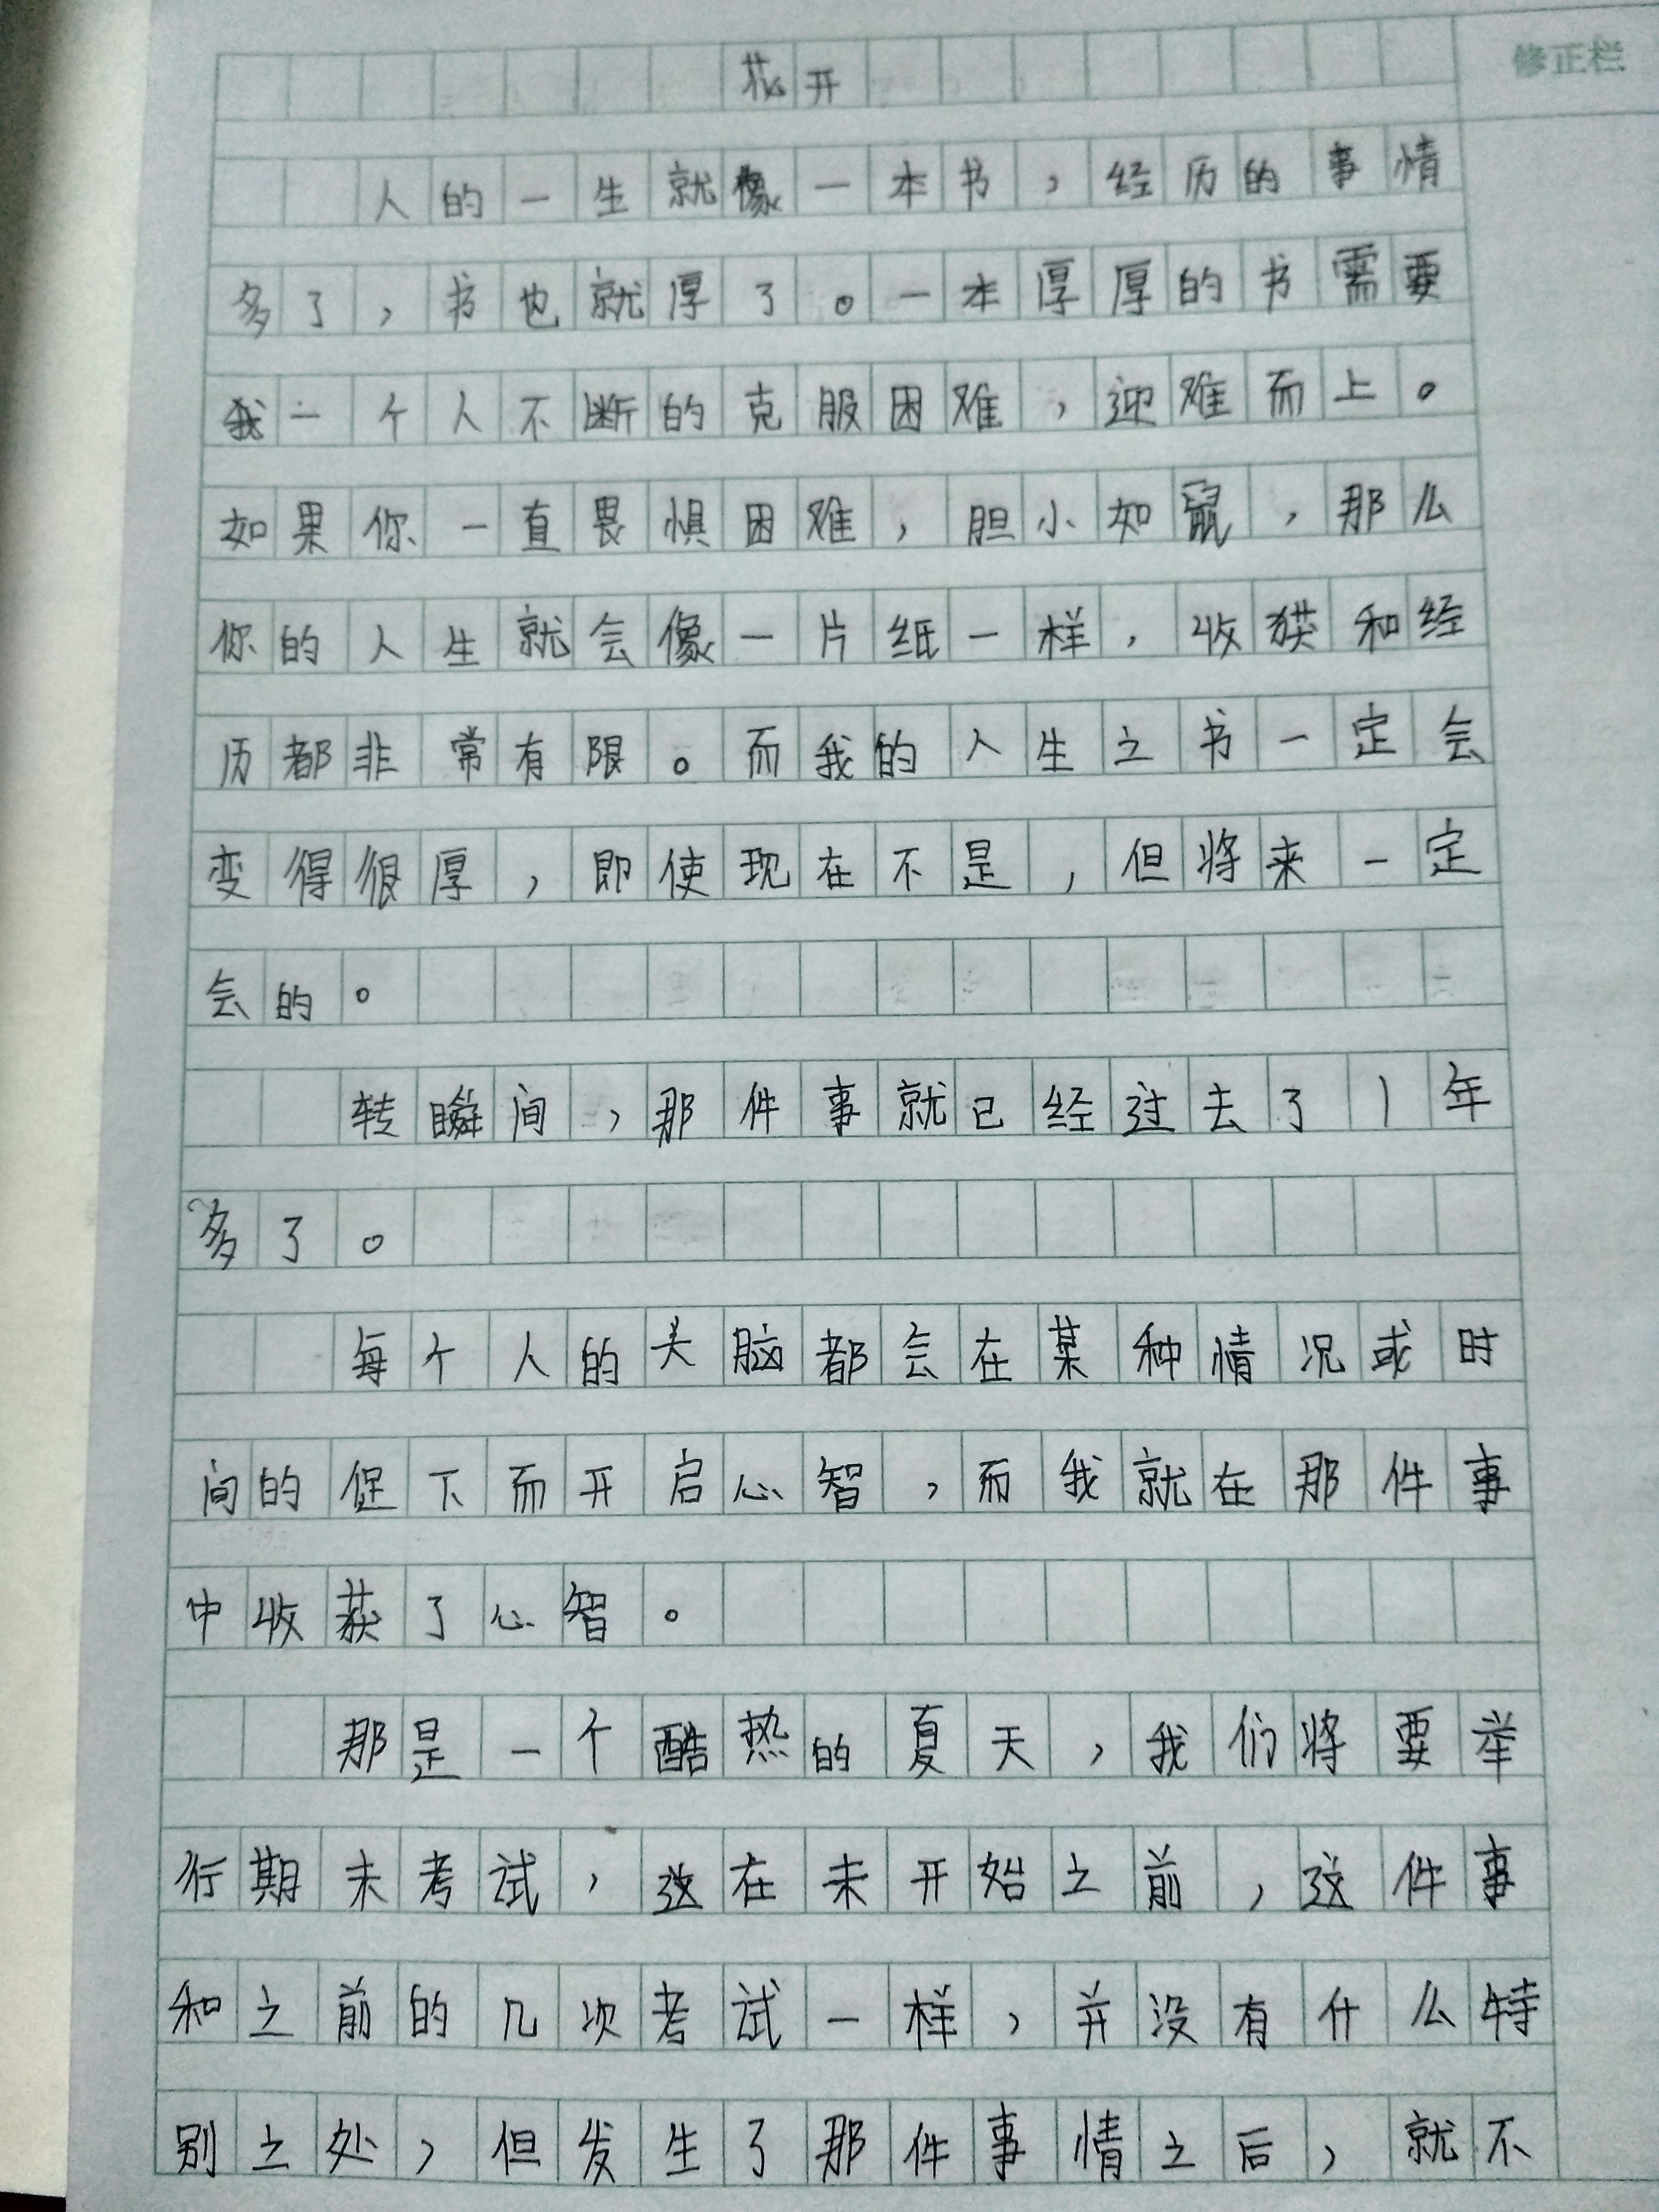 花开
修正栏
人的一生就像一本书，经历的事情
多了，书也就厚了。一本厚厚的书需要
我一个人不断的克服困难，迎难而上。
如果你一直畏惧困难，胆小如鼠，那么
你的人生就会像一片纸一样，收获和经
历都非常有限。而我的人生之书一定会
变得很厚，即使现在不是，但将来一定
会的。
转瞬间，那件事就已经过去了1年
多了。
每个人的头脑都会在某种情况或时
间的促下而开启心智，而我就在那件事
中收获了心智。
那是一个酷热的夏天，我们将要举
行期末考试，这在未开始之前，这件事
和之前的几次考试一样，并没有什么特
别之处，但发生了那件事情之后，就不